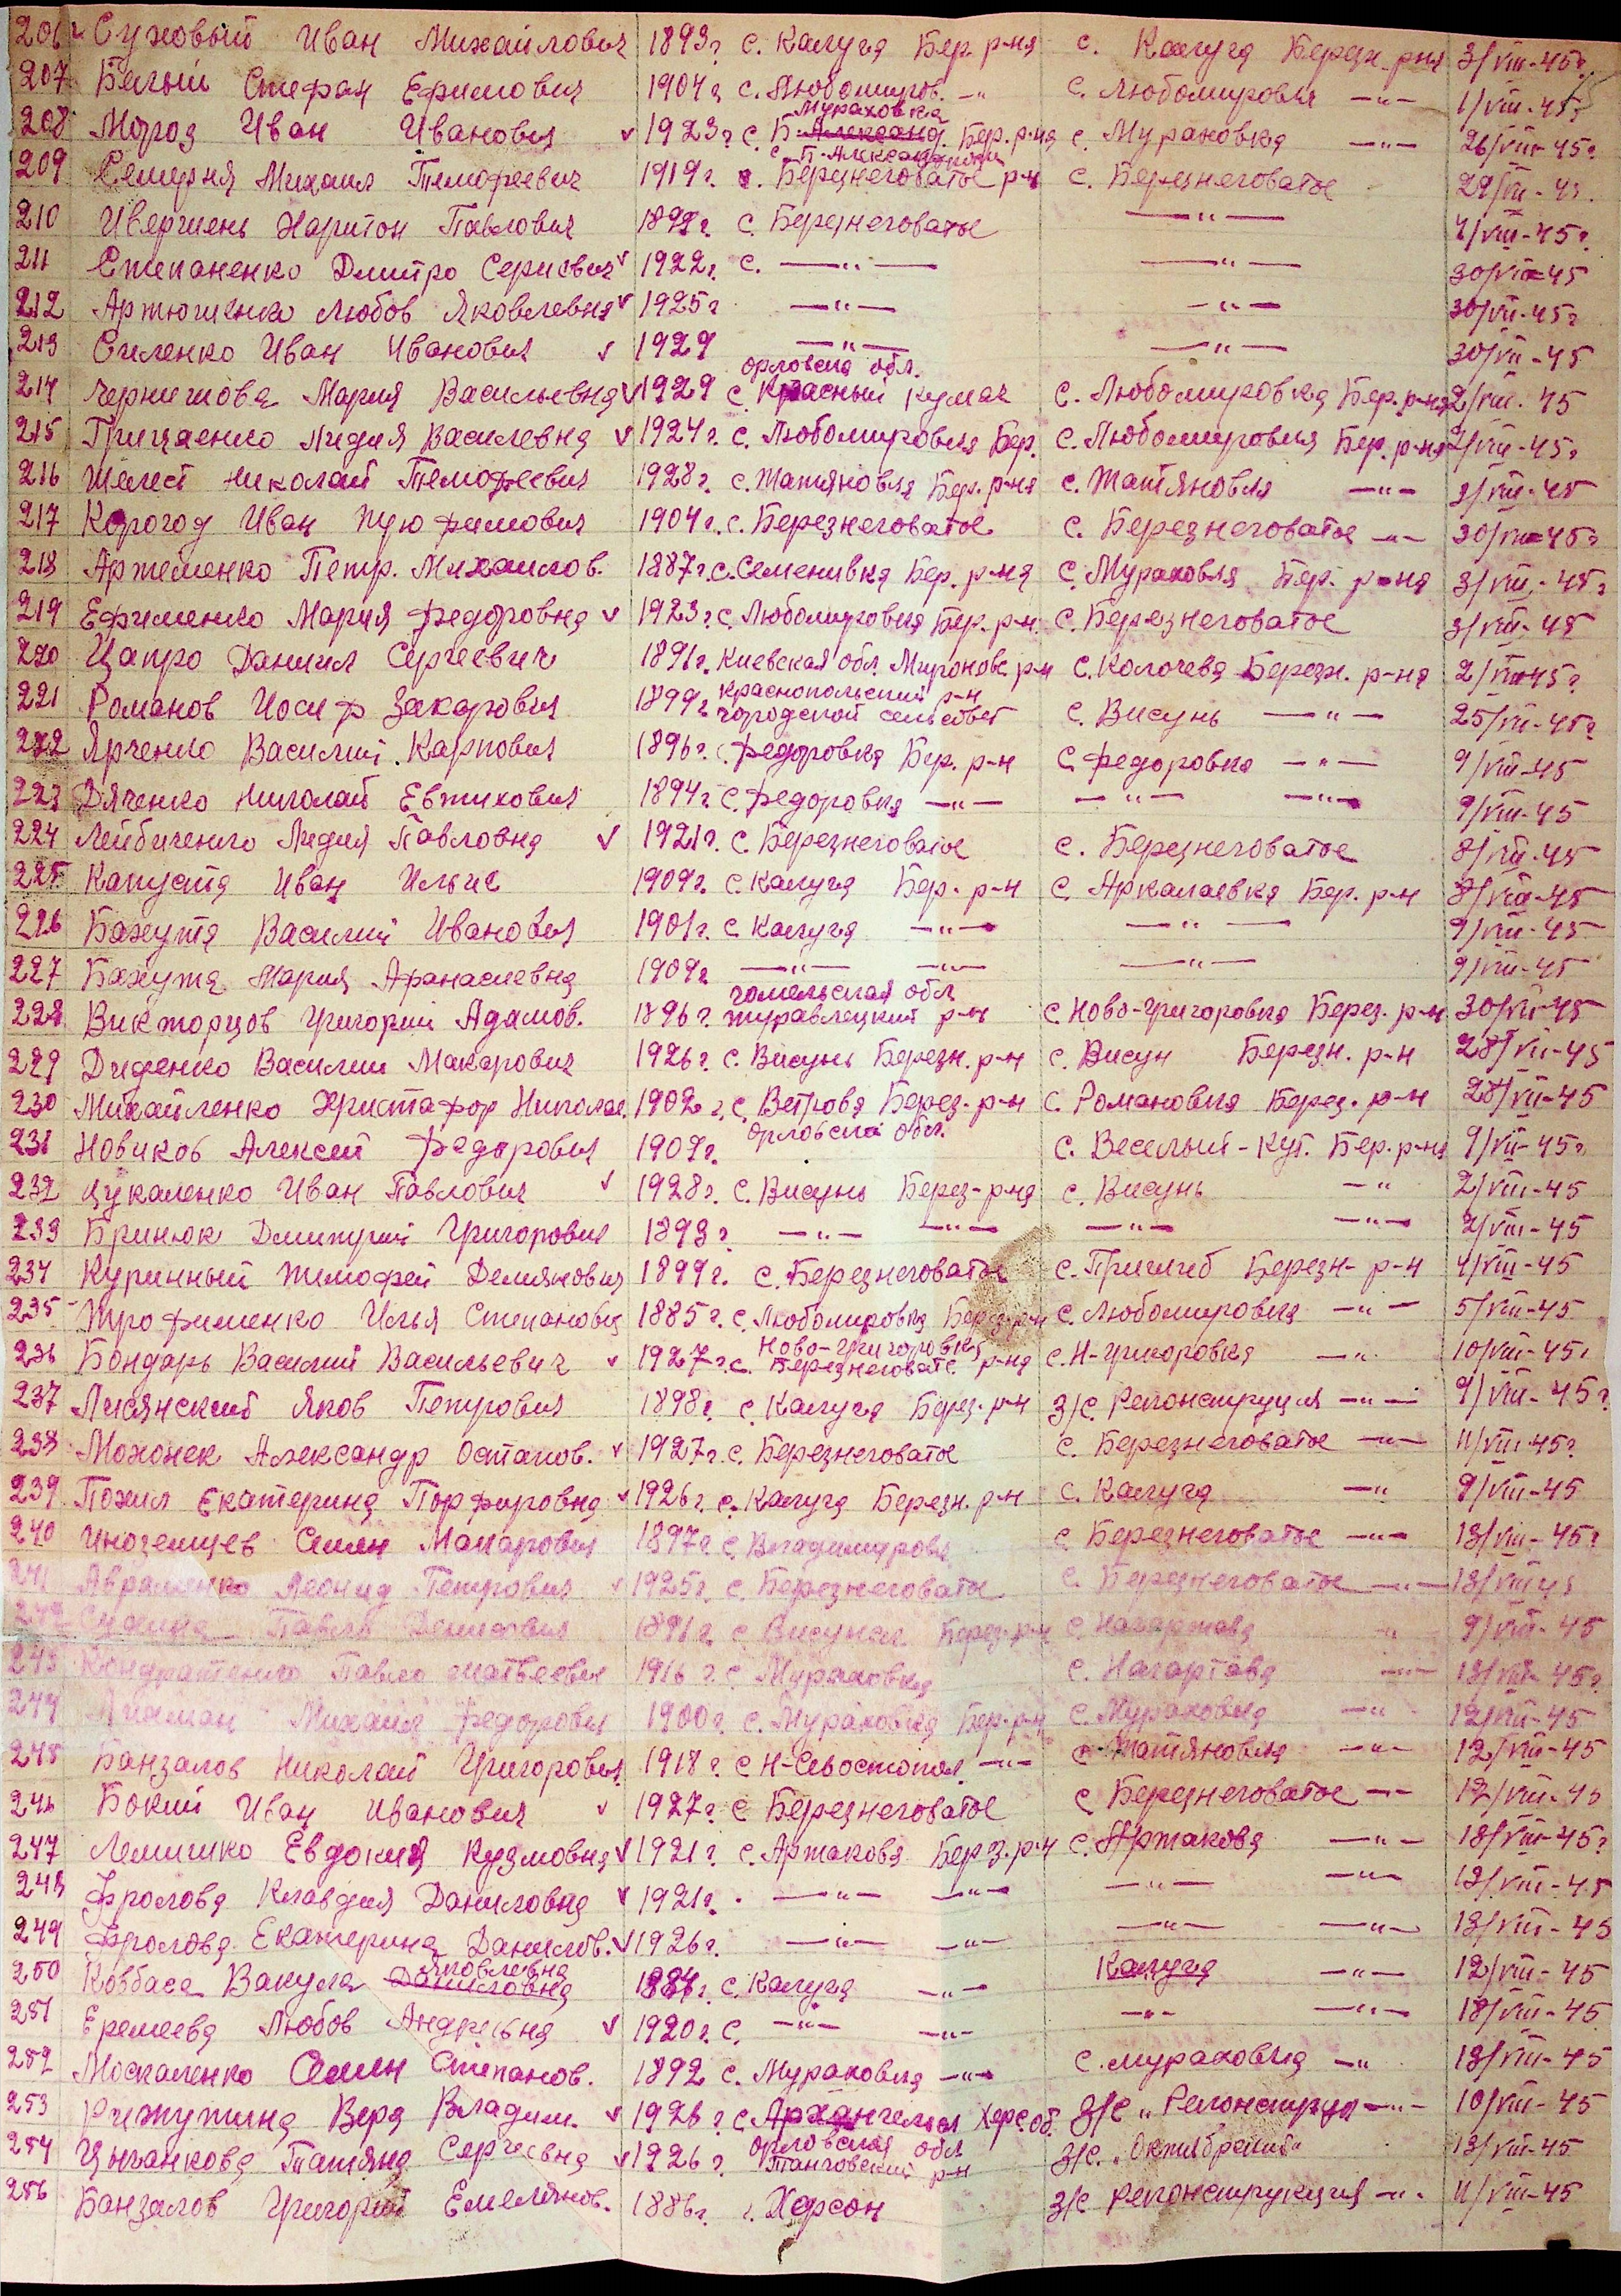 206 Суховый Иван Михайлович 1893г с. Калуга Бер. р-на с. Калуга Березн. р-на 3/VIII-45г
207 Белый Стефан Ефимович 1904г с. Любомиров. -"- с. Любомировка -"- 1/VIII-45г
Мураховка
208 Мороз Иван Иванович v 1923г с. Бер. р-на с. Мураховка -"- 26/VIII-45г
с. П-Александровка
209 Семерня Михаил Тимофеевич 1919г. Березнеговатое р-н с. Березнеговатое 29/VII-45.
210 Харитон Павлович с. Березнеговатое -"- 4/VIII-45г.
211 Степаненко Дмитро Сергеевич v 1922г. с. -"- -"- 30/VII-45
212 Артюшенко Любов Яковлевна v 1925г -"- -"- 30/VII-45г
213 Силенко Иван Иванович v 1929 -"- -"- 30/VII-45
орловска обл.
214 Чернишова Мария Васильевна v 1929 с. Красный кумач с. Любомировка Бер. р-на 2/VIII-45
215 Грицаенко Лидия Василевна v 1924г. с. Любомировка Бер. с. Любомировка Бер. р-на 2/VIII-45г
216 Шелест Николай Тимофеевич 1928г. с. Татяновка Бер. р-на с. Татяновка -"- 3/VIII-45
217 Корогод Иван Трофимович 1904г. с. Березнеговатое с. Березнеговатое -"- 30/VII-45г
218 Артеменко Петр. Михаилов. 1887г. с. Семенивка Бер. р-на с. Мураховка Бер. р-на 3/VIII-45г
219 Ефименко Мария Федоровна v 1923г. с. Любомировка Бер. р-н. с. Березнеговатое 3/VIII-45
220 Цапро Даниил Сергеевич 1891г. Киевская обл. Миронове. р-н с. Колочева Березн. р-на 2/VIII-45г.
Краснопольский р-н
221 Романов Иосиф Захарович 1899г городской сельсовет с. Висунь -"- 25/VII-45г
222 Ярченко Василий Карпович 1896г. с. Федоровка Бер. р-н с. Федоровка -"- 9/VIII-45
223 Дяченко Николай Евтихович 1894г. с. Федоровка -"- -"- -"- 9/VIII-45
224 Лейбиченко Лидия Павловна v 1921г. с. Березнеговатое с. Березнеговатое 8/VIII-45
225 Капуста Иван Ильич 1909г. с. Калуга Бер. р-н с. Аркалаевка Бер. р-н 8/VIII-45
226 Бахута Василий Иванович 1901г. с. Калуга -"- -"- 9/VIII-45
227 Бахута Мария Афанасиевна 1909г -"- -"- -"- 9/VIII-45
гомельская обл
228 Викторцов Григорий Адамов. 1896г. журавлецкий р-н с. Ново-Григоровка Берез. р-н 30/VII-45
229 Диденко Василий Макарович 1926г. с. Висунь Березн. р-н с. Висун Березн. р-н 28/VII-45
230 Михайленко Христафор Николае. 1902г. с. Ветрова Берез. р-н с. Романовка Берез. р-н 28/VII-45
орловска обл.
231 Новиков Алексей Федорович 1909г. с. Веселый-Кут. Бер. р-на 9/VIII-45г.
232 Цукаленко Иван Павлович v 1928г. с. Висунь Берез-р-на с. Висунь -"- 2/VIII-45
233 Бринюк Дмитрий Григорович 1893г. -"- -"- -"- -"- 2/VIII-45
234 Куринный Тимофей Демянович 1899г. с. Березнеговатое с. Пришиб Березн-р-н 4/VIII-45
235 Трофименко Илья Степанович 1885г. с. Любомировка Берез. р-н с. Любомировка -"- 5/VIII-45
Ново-Григоровка
236 Бондарь Василий Васильевич v 1927г. с. Березнеговатс. р-на с. Н-Григоровка -"- 10/VIII-45г
237 Лисянский Яков Петрович 1898г. с. Калуга Берез. р-н З/С. Реконструция -"- 9/VIII-45г.
238 Мохонек Александр Остапов. v 1927г. с. Березнеговатое с. Березнеговатое -"- 11/VIII-45г
239 Похил Екатерина Порфировна v 1926г. с. Калуга Березн. р-н с. Калуга -"- 9/VIII-45
240 Иноземцев Семен Макарович 1897г с. Владимировка с. Березнеговатое -"- 13/VIII-45г
241 Авраменко Леонид Петрович v 1925г. с. Березнеговатое с. Березнеговатое -"- 13/VIII-45
242 Павло Денисович 1891г. с. Висунск Берез. р-н с. Нагартава -"- 9/VIII-45
243 Кондратенко Павло Матвеевич 1916г. с. Мураховка с. Нагартава -"- 13/VIII-45г.
244 Михаил Федорович 1900г. с. Мураховка Бер. р-н с. Мураховка -"- 12/VIII-45
245 Банзалов Николай Григорович 1918г. с. Н-Севостопол. -"- с. Татяновка -"- 12/VIII-45
246 Бокий Иван Иванович v 1927г. с. Березнеговатое с. Березнеговатое -"- 12/VIII-45
247 Лемишко Евдокия Кузмовна v 1921г. с. Артакова Берз. р-н с. Артакова -"- 13/VIII-45г
248 Фролова Клавдия Даниловна v 1921г. -"- -"- -"- -"- 13/VIII-45
249 Фролова Екатерина Данилов. v 1926г. -"- -"- -"- -"- 13/VIII-45
Яковлевна
250 Ковбаса Вакула Даниловна 1884г. с. Калуга -"- Калуга -"- 12/VIII-45
251 Еремеева Любов Андреевна v 1920г. с. -"- -"- -"- -"- 13/VIII-45
252 Москаленко Семен Степанов. 1892 с. Мураховка -"- с. Мураховка -"- 13/VIII-45
253 Рижутина Вера Владим. v 1926г. с. Архангельск Херс. об. З/С „Реконструц -"- 10/VIII-45
орловская обл
254 Цыганкова Татяна Сергеевна v 1926г. р-н З/С. „Октябрский" 13/VIII-45
256 Банзалов Григорий Емелянов. 1886г. г. Херсон З/С Реконструкция -"- 11/VIII-45